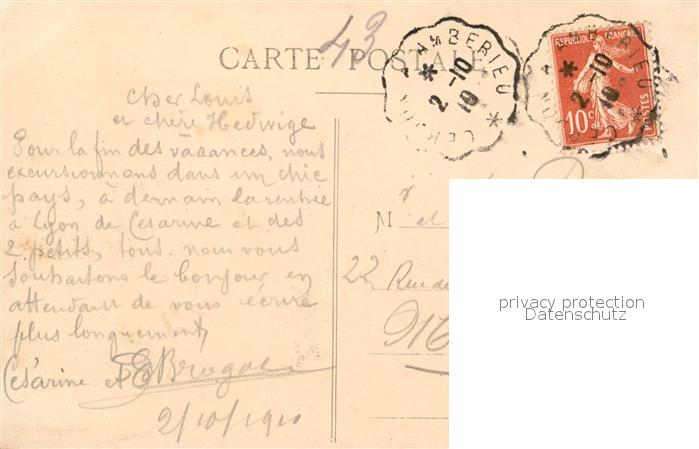 43
CARTE POSTALE
AMBERIEU
2-10
10
AMBERIEU
2-10
10
REPUBLIQUE FRANÇAISE
10c
POSTES
Cher Louis
et chère Hedwige
Pour la fin des vacances, nous
excursionnons dans un chic
pays, à demain la rentrée
à Lyon de Cesarine et des
2 petits, tous nous vous
souhaitons le bonjour en
attendant de vous écrire
plus longuement
Césarine et
2/10/1910
M
et
22 Rue de
privacy protection
Datenschutz